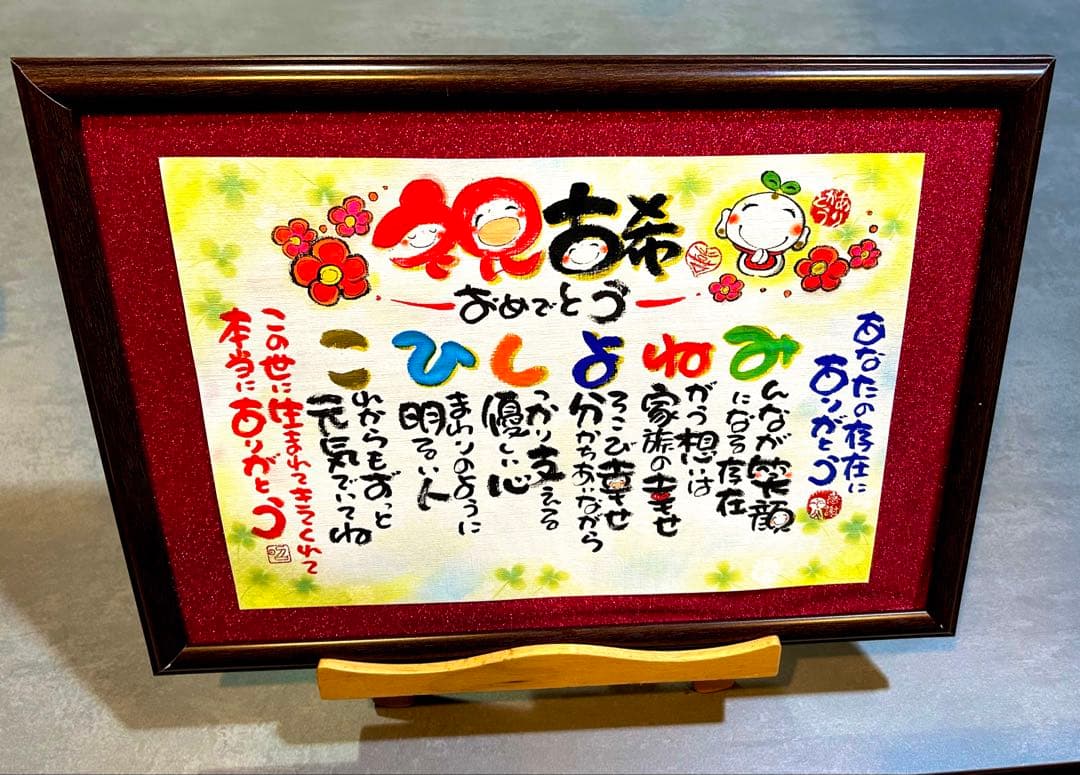 祝古希
ありがとう
おめでとう
あなたの存在に
ありがとう
感謝
みんなが笑顔
になる存在
ねがう想いは
家族の幸せ
よろこび幸せ
分かちあいながら
しっかり支える
優しい心
ひまわりのように
明るい人
これからもずっと
元気でいてね
この世に生まれてきてくれて
本当にありがとう